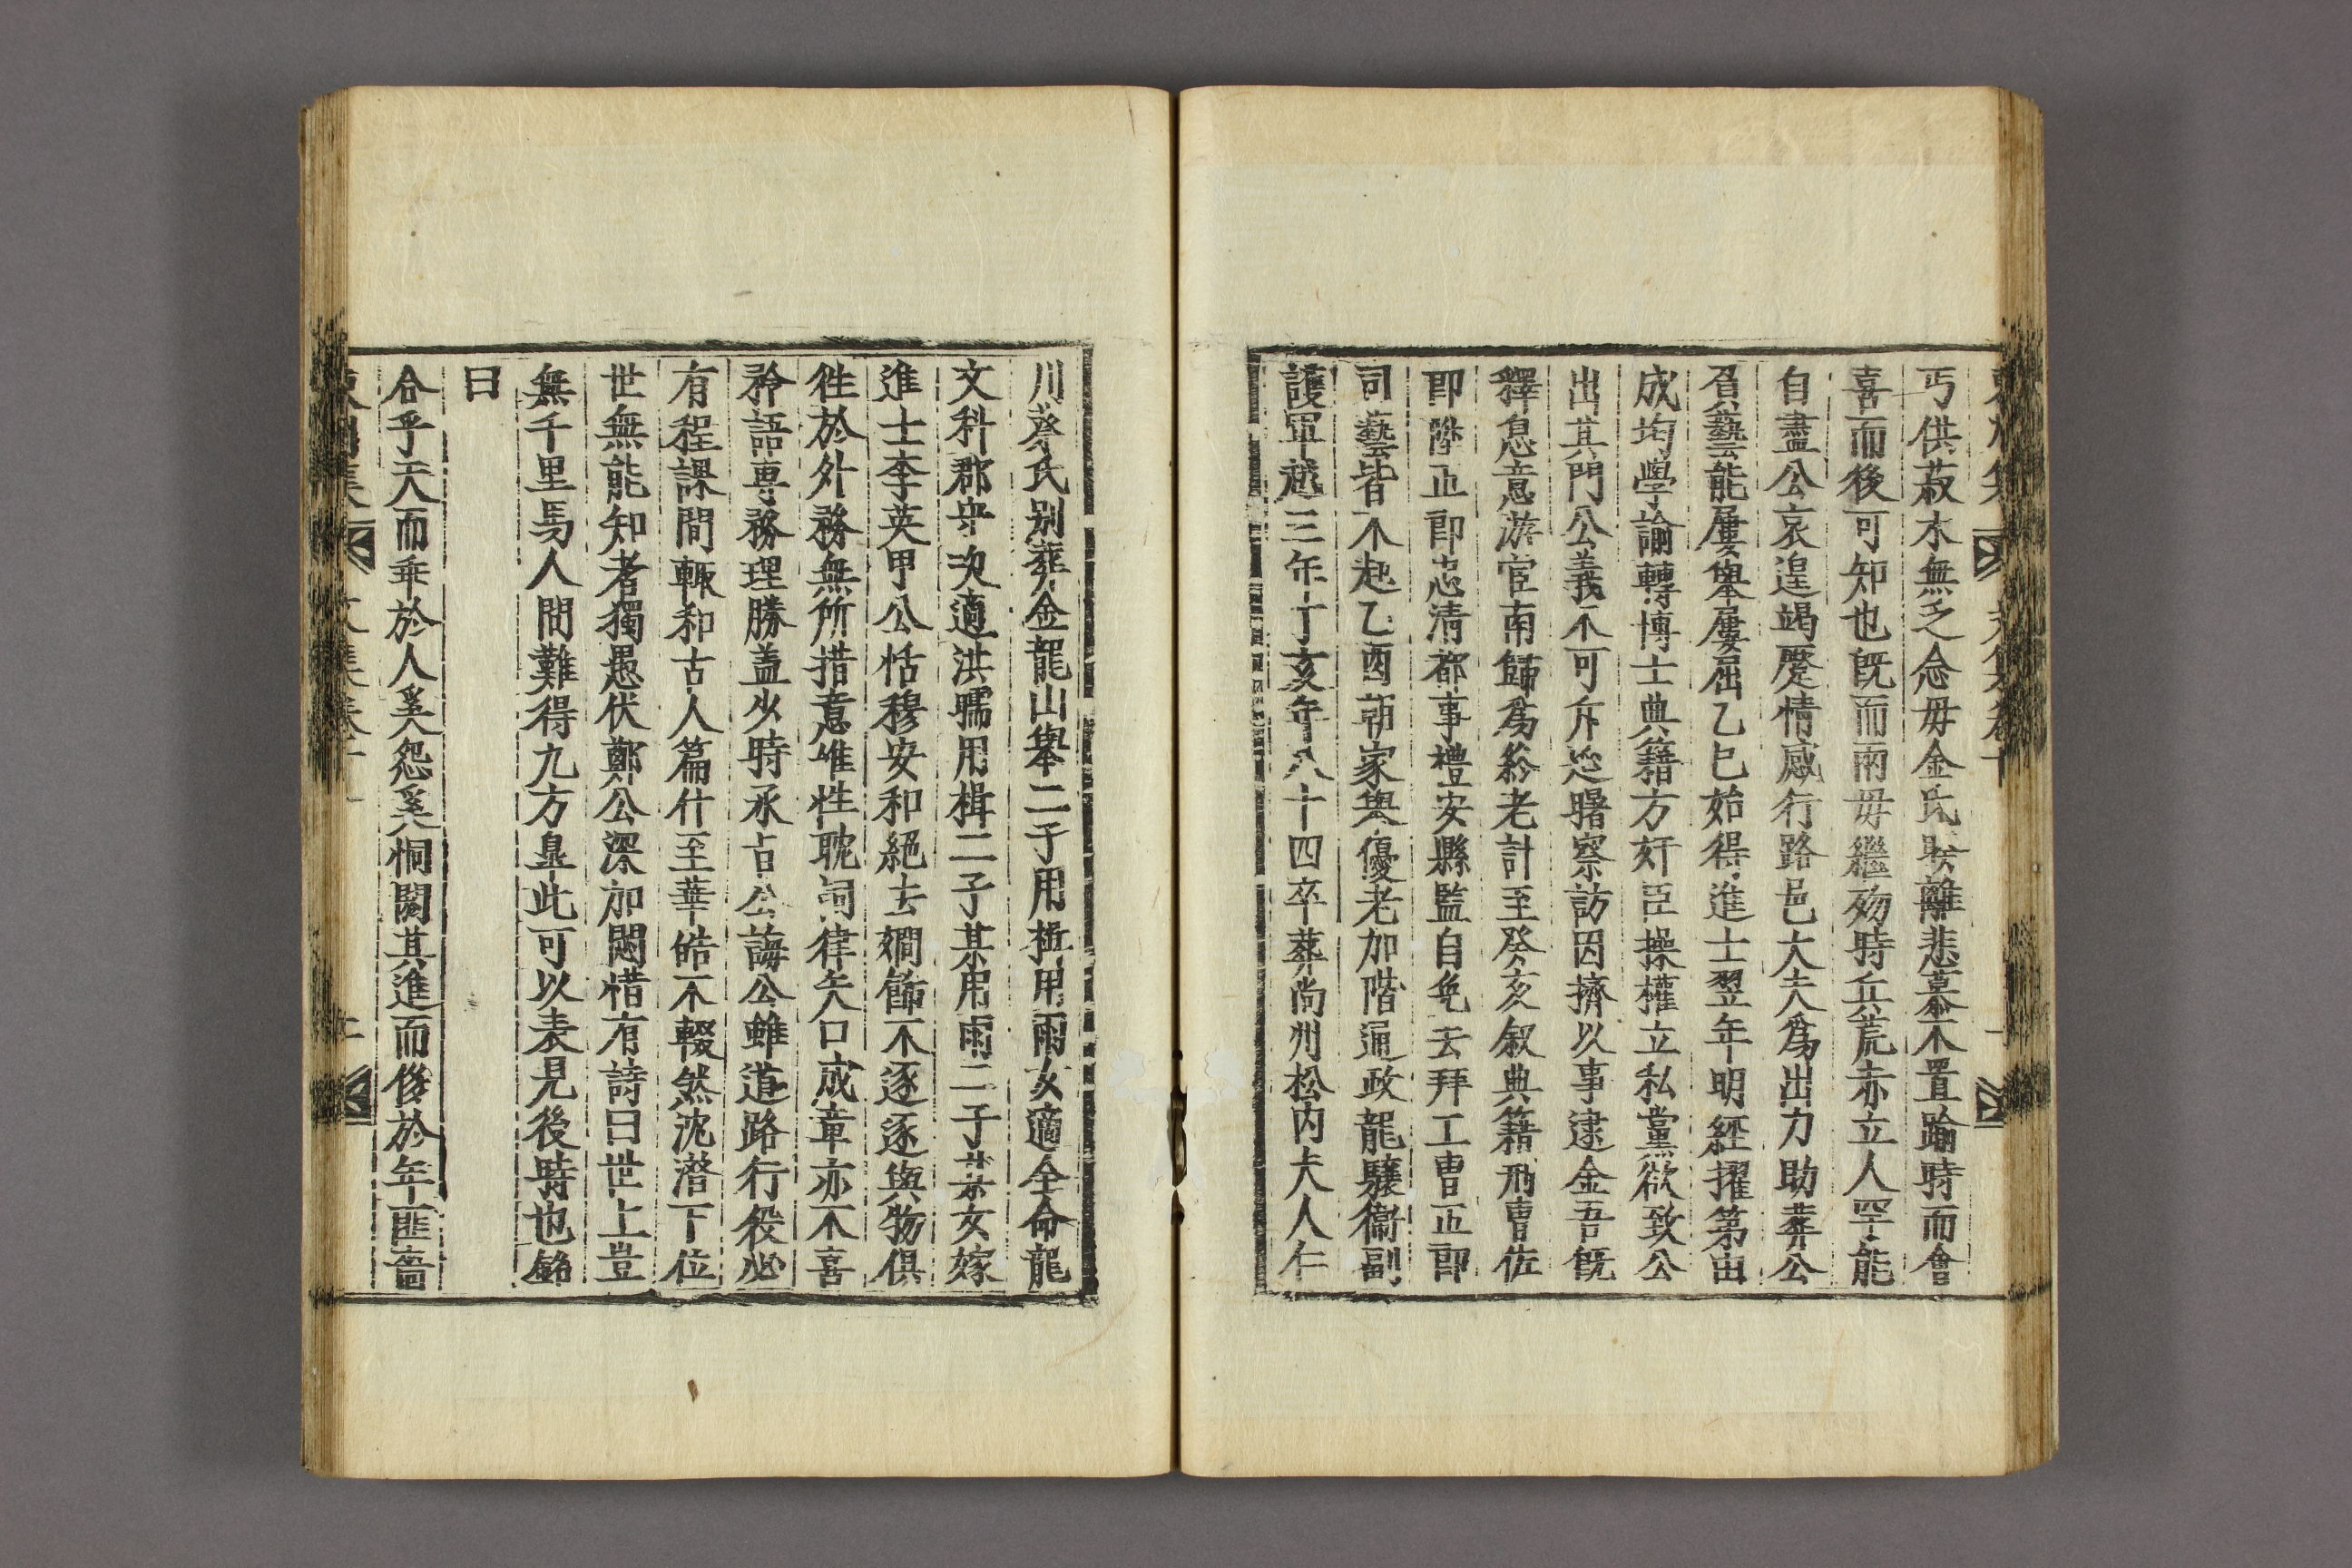 丐供菽水無乏念毋金氏睽離悲慕不置踰時而會
喜而後可知也旣而兩毋繼歿時兵荒赤立人罕能
自盡公哀遑竭蹷情感行路邑大夫爲出力助葬公
負藝能屢擧屢屈乙巳始得進士翌年明經擢第由
成均學諭轉博士典籍方奸臣操權立私黨欲致公
出其門公義不可斥迯曙察訪因擠以事逮金吾旣
釋息意游宦南歸爲終老計至癸亥叙典籍刑曹佐
郎陞正郎忠清都事禮安縣監自免去拜工曹正郎
司藝皆不赴乙酉朝家擧優老加階通政龍驤衛副
護軍越三年丁亥年八十四卒葬尚州松內夫人仁
川蔡氏别葬金龍山擧二子用揖用雨女適全命龍
文科郡守次適洪曘用楫二子某用雨二子某女嫁
進士李英甲公恬穆安和絕去嫺飾不逐逐與物俱
徃於外務無所措意惟性耽詞律矢口成章亦不喜
矜語專務理勝盖少時承占公誨公雖道路行役必
有程課間輒和古人篇什至華皓不輟然沈潜下位
世無能知者獨愚伏鄭公深加閔惜有詩曰世上豈
無千里馬人間難得九方臯此可以表見後時也銘
曰
合乎天而乖於人奚怨奚恫閼其進而俊於年匪嗇